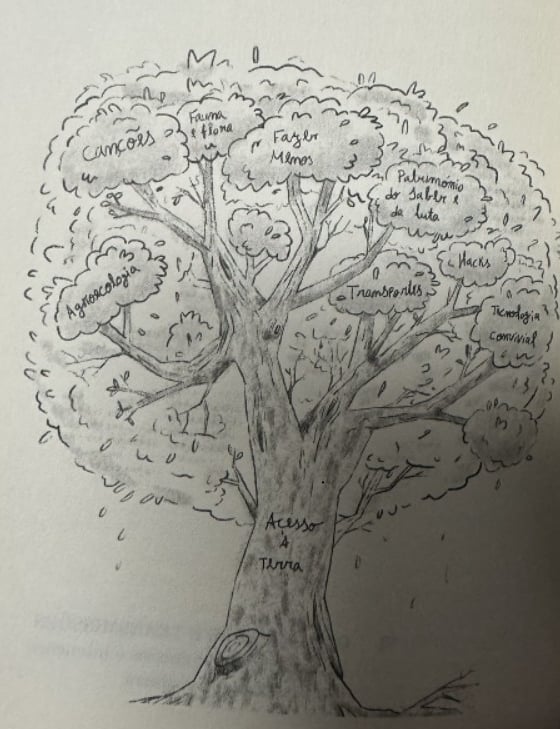 Canções
Fauna
e flora
Fazer
Menos
Património
do Saber e
da luta
Agroecologia
Transportes
Hacks
Tecnologia
Convivial
Acesso
à
Terra